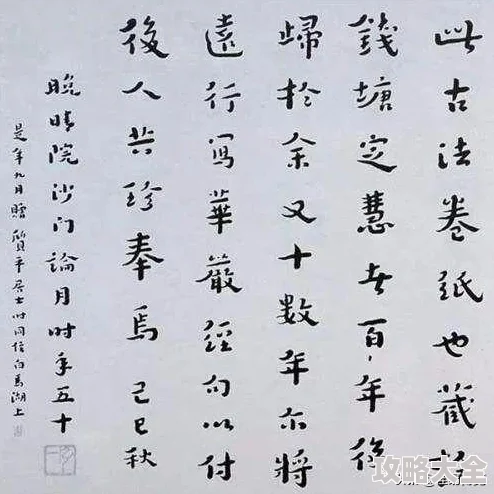 此古法卷紙也藏於
錢塘定慧寺百年後
歸於余又十數年尔將
遠行寫華嚴經句以付
後人共珍奉焉己巳秋
晚晴院沙门論月时年五十
是年九月贈質平居士时同住白馬湖上
攻略大全